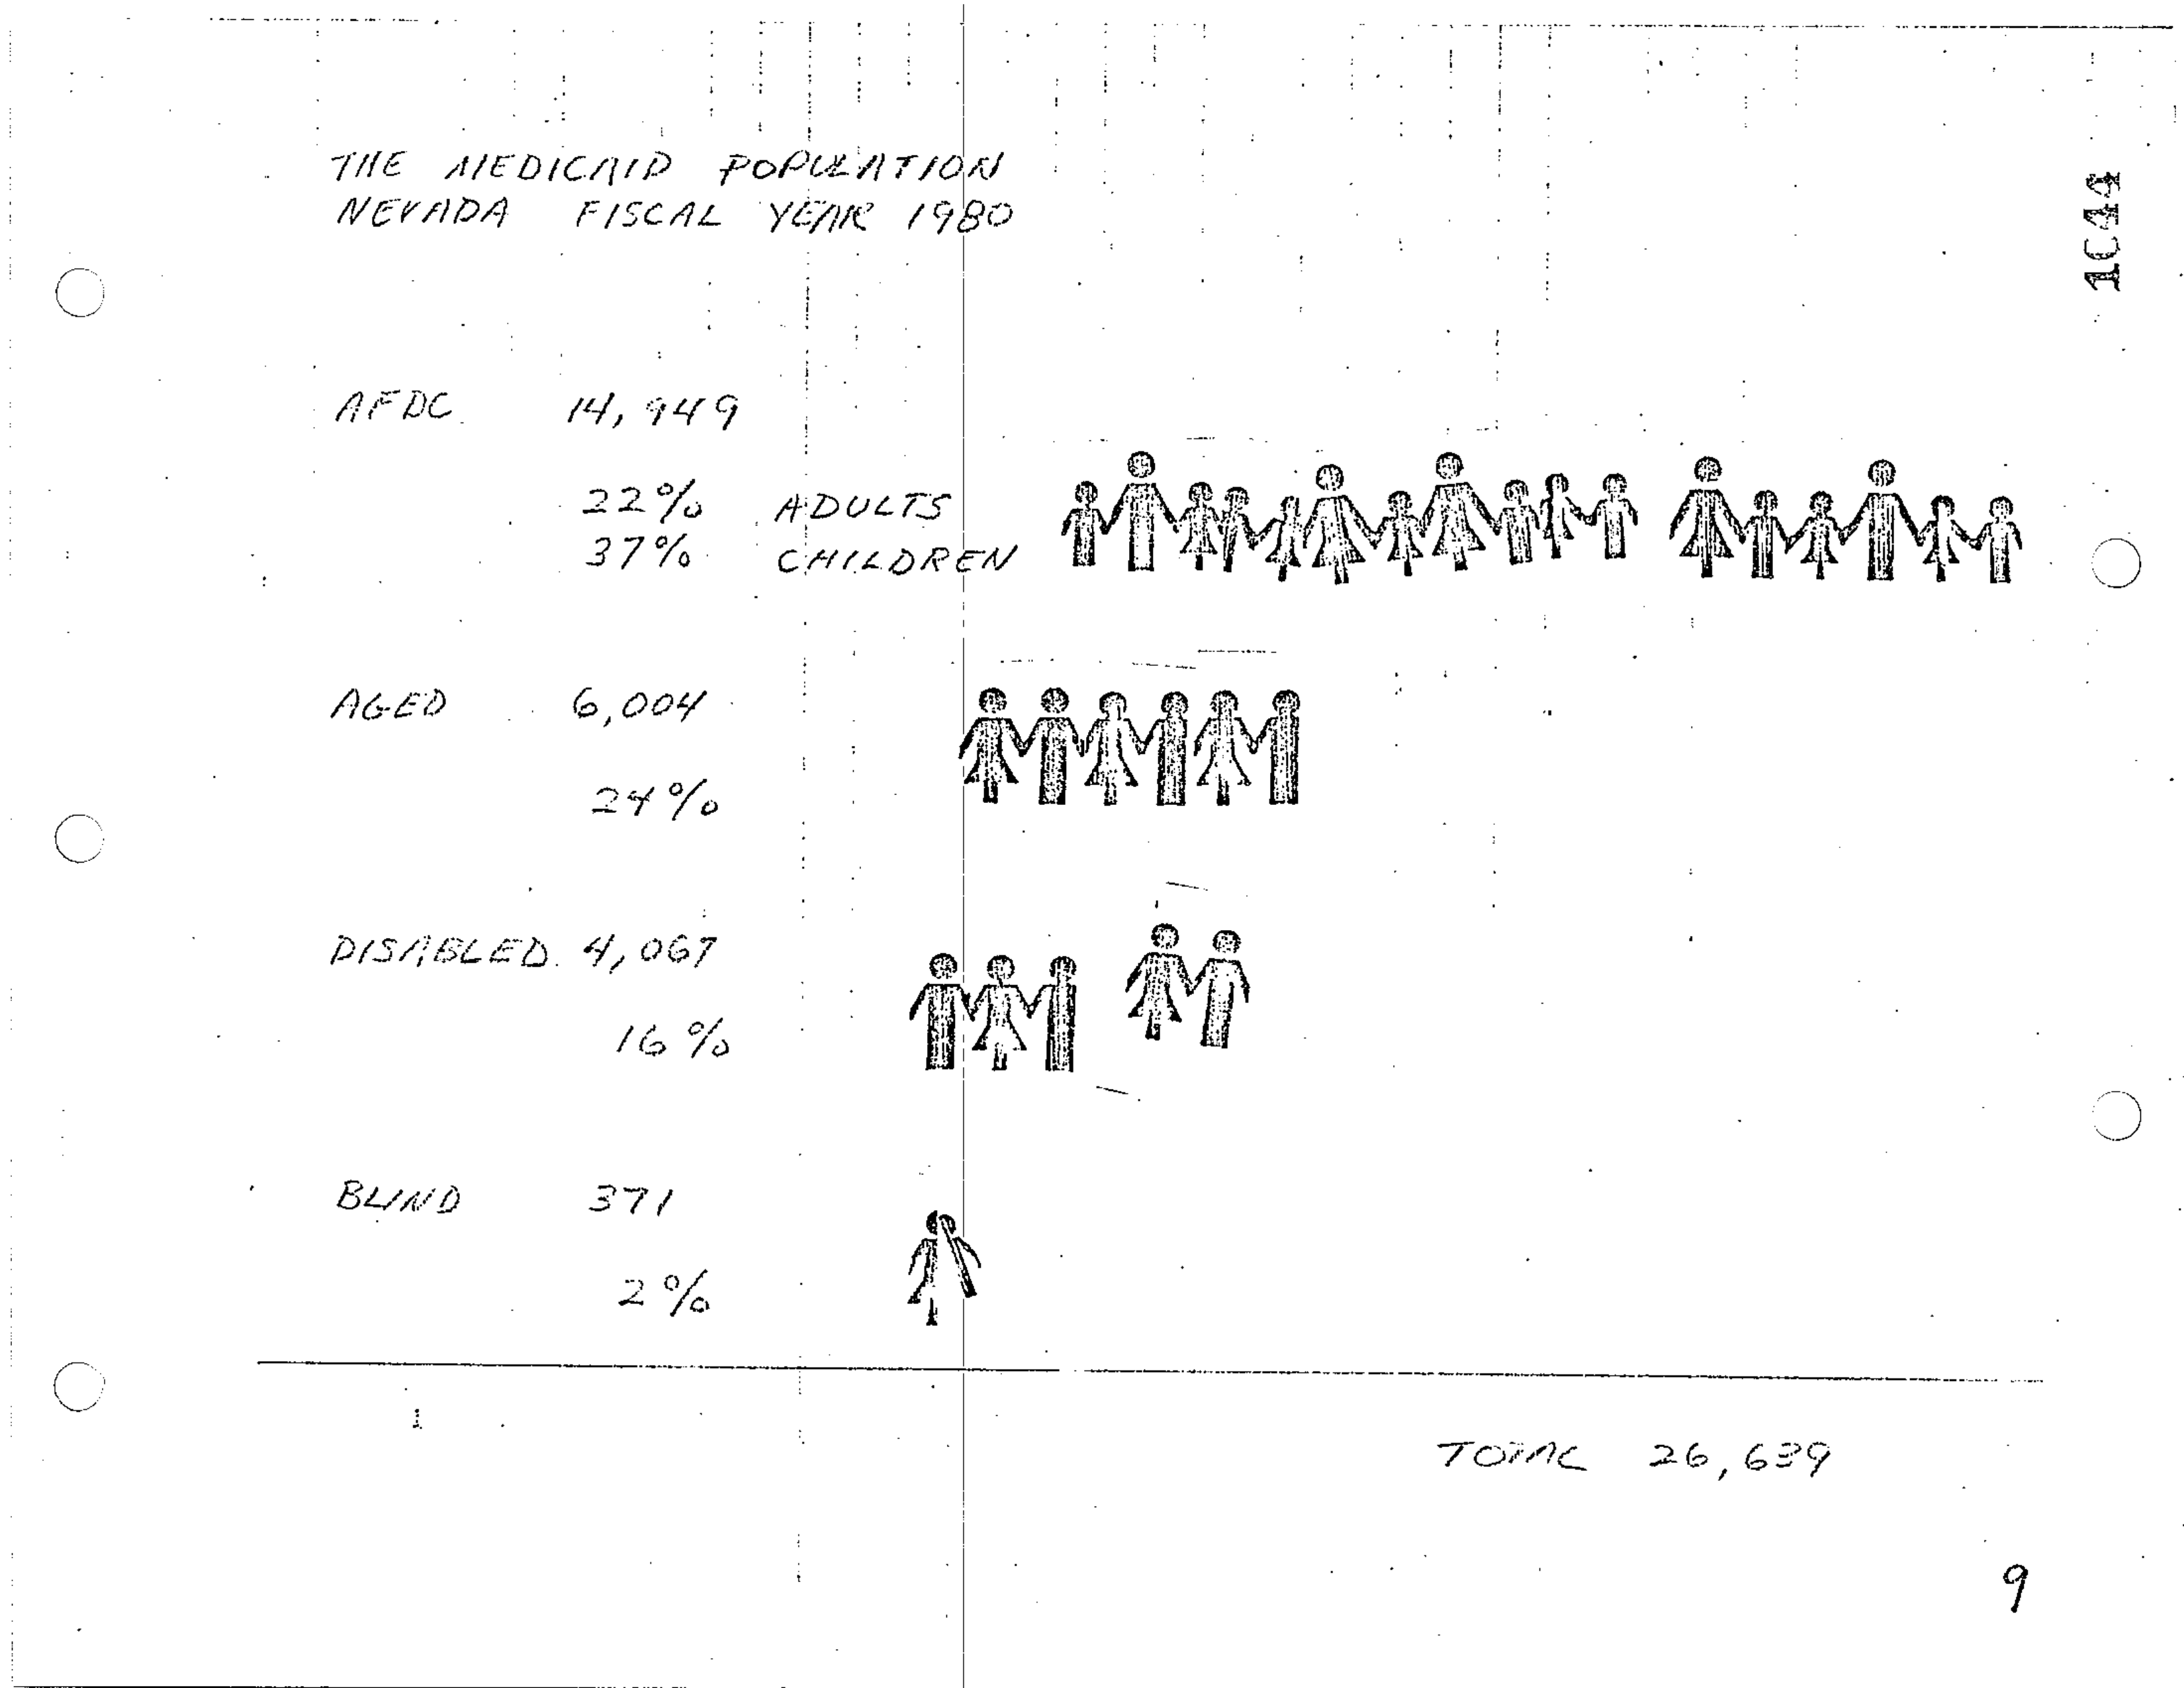 THE MEDICAID POPULATION
NEVADA FISCAL YEAR 1980
1044
AFDC 14,949
22% ADULTS
37% CHILDREN
AGED 6,004
24%
DISABLED 4,067
16%
BLIND 371
2%
TOTAL 26,639
9